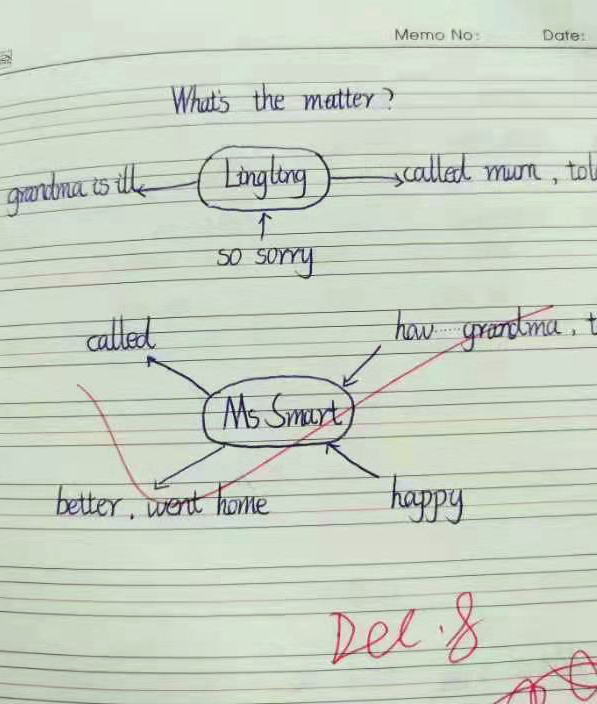 Memo No: Date:
What's the matter?
grandma is ill Lingling called mum, tol
so sorry
called how ······ grandma, t
Ms Smart
better, went home happy
Dec. 8